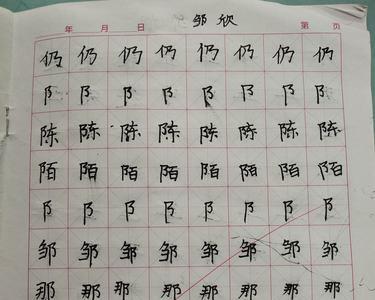 年 月 日 邹欣 第 页
仍 仍 仍 仍 仍 仍 仍 仍
阝 阝 阝 阝 阝 阝 阝 阝
陈 陈 陈 陈 陈 陈 陈 陈
陌 陌 陌 陌 陌 陌 陌 陌
阝 阝 阝 阝 阝 阝 阝 阝
邹 邹 邹 邹 邹 邹 邹 邹
那 那 那 那 那 那 那 那